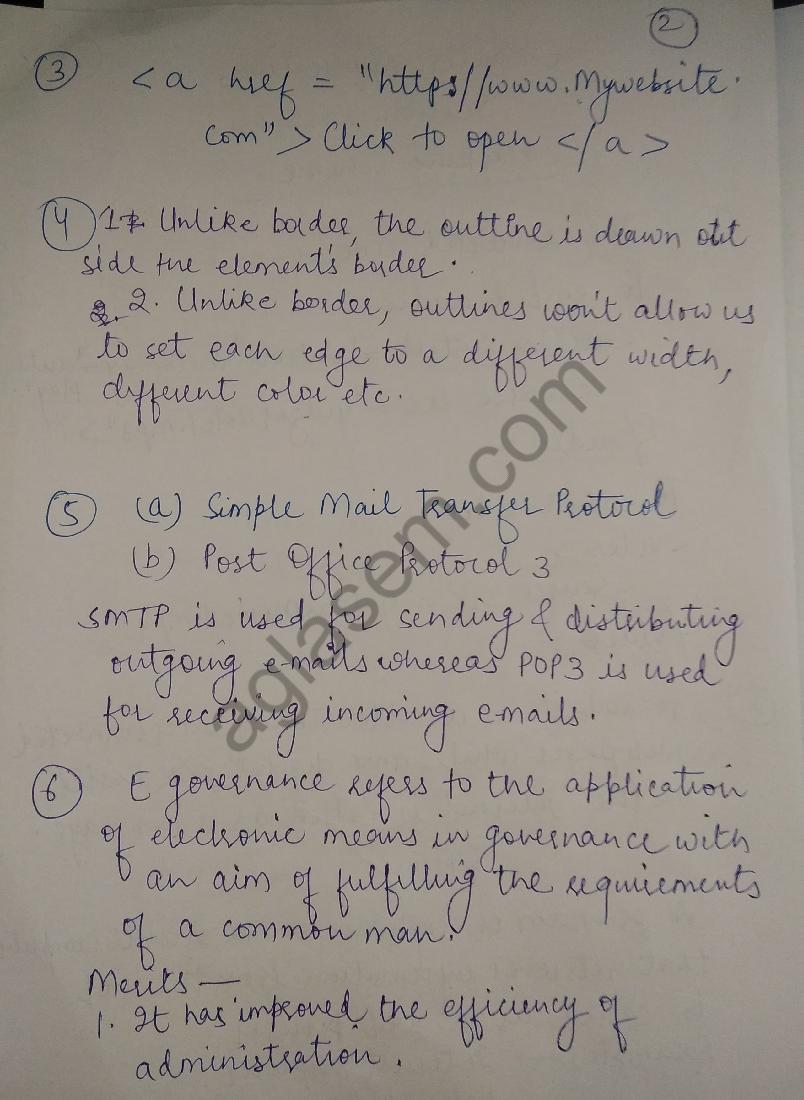 2
3 <a href = "https//www.Mywebsite.
com"> Click to open </a>
4 1. Unlike border, the outline is drawn out
side the element's border.
2. Unlike border, outlines won't allow us
to set each edge to a different width,
different color etc.
5 (a) Simple Mail Transfer Protocol
(b) Post Office Protocol 3
SMTP is used for sending & distributing
outgoing e-mails whereas POP3 is used
for receiving incoming emails.
6 E governance refers to the application
of electronic means in governance with
an aim of fulfilling the requirements
of a common man.
Merits —
1. It has improved the efficiency of
administration.
aglasem.com